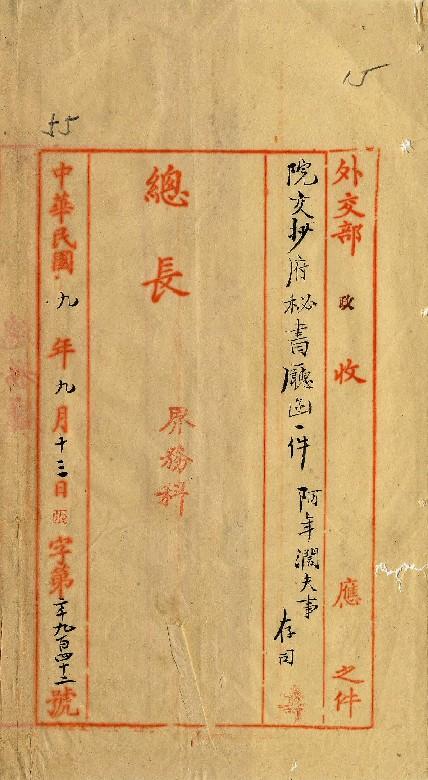 15
55
外交部 政 收 應 之件
院交抄府秘書廳函一件 阿年濶夫事 存司
總長
界務科
中華民國九年九月十三日 字第 千九百四十二號